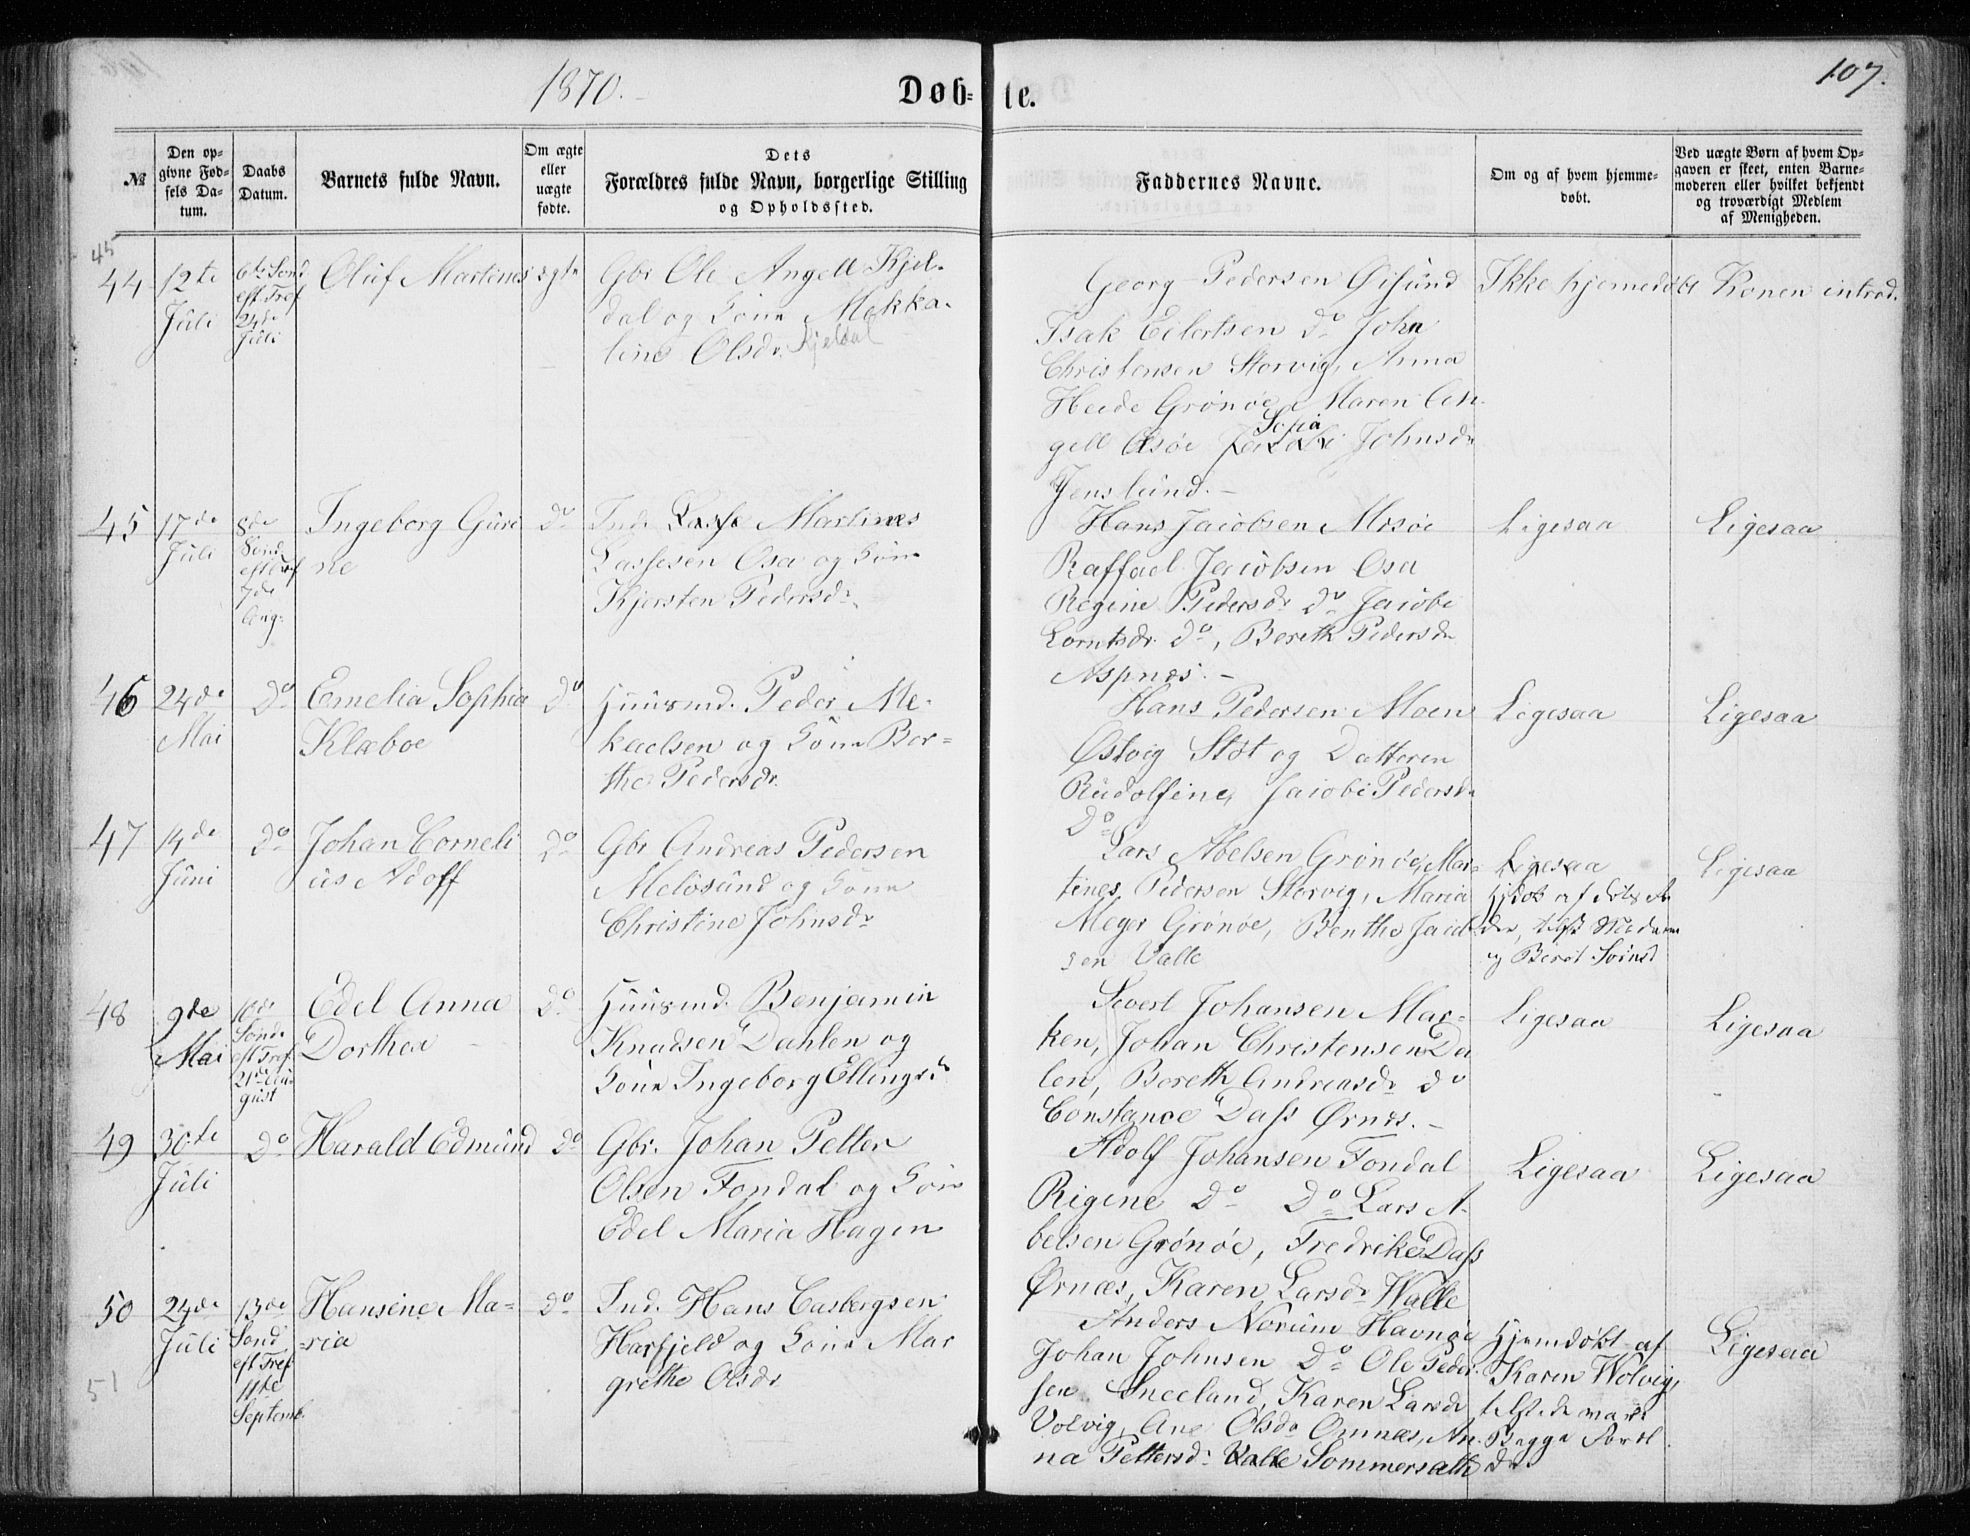 1870.
Døb=
te.
107.
№
Den op=
givne Fød=
sels Da=
tum.
Daabs
Datum.
Barnets fulde Navn.
Om ægte
eller
uægte
fødte.
Dets
Forældres fulde Navn, borgerlige Stilling
og Opholdssted.
Faddernes Navne.
Om og af hvem hjemme=
døbt.
Ved uægte Børn af hvem Op=
gaven er skeet, enten Barne=
moderen eller hvilket bekjendt
og troværdigt Medlem
af Menigheden.
45
44
12te
Juli
6te Sønd
eft Tref
24de
Juli
Oluf Martines
ægte
Gbr Ole Angell Kjel=
dal og Kone Mekka=
line Olsdr. Kjeldal
Georg Pedersen Øisund
Isak Eilertsen Do John
Christensen Storvig, Anna
Heide Grønøe, Maren An=
gell Osøe Sofia Johnsdr
Jenslund.–
Ikke hjemedøbt
Konen introd.
45
17de
Juli
8de
Sønd
eft Tref
7de
Aug:
Ingeborg Guri
ne
Do
Ind. Martines
Lassesen Osa og Kone
Kjersten Pedersdr.
Hans Jacobsen Mosøe
Raffael Jacobsen Osa
Regine Pedersdr Do Jacobi
Lorntsdr. Do, Bereth Pedersdr
Aspnæs.–
Ligesaa
Ligesaa
46
24de
Mai
Do
Emelia Sophia
Klæboe
Do
Huusmd. Peder Me=
kaelsen og Kone Ber=
the Pedersdr.
Hans Pedersen Moen
Østvig Støt og Datteren
Rudolfine, Jacobi Pedersdr
Do
Ligesaa
Ligesaa
47
14de
Juni
Do
Johan Corneli
us Adoff
Do
Gbr Andreas Pedersen
Meløsund og Kone
Christine Johnsdr
Lars Abelsen Grønøe, Mar=
tines Pedersen Storvig, Maria
Meyer Grønøe, Benthe Jacob
sen Valle
Ligesaa
Hjdøb af
der, tilst Moderen
og Beret
Ligesaa
48
9de
Mai
10de
Sønd
eft Tref
21de Au
gust
Edel Anna
Dorthea
Do
Huusmd. Benjamin
Knudsen Dahlen og
Kone Ingeborg Ellingsdr
Sivert Johansen Mar=
ken, Johan Christensen Da
len, Bereth Andreasdr Do
Constance Dass Ørnes.–
Ligesaa
Ligesaa
49
30te
Juli
Do
Harald Edmund
Do
Gbr. Johan Petter
Olsen Fondal og Kone
Edel Maria Hagen
Adolf Johansen Fondal
Rigine Do Do Lars A=
belsen Grønøe, Fredrike Dass
Ørnæs, Karen Larsdr Walle
Ligesaa
Ligesaa
50
24de
Juli
13de
Sønd
eft Tref
11te
Septemb.
Hansine Ma=
=ria
Do
Ind. Hans Casbergsen
Harfjeld og Kone Mar
grethe Olsdr
Anders Norum Havnøe
Johan Johnsen Do Ole Peder=
sen Sneeland, Karen Larsdr
Volvig, Ane Olsdr Omnæs, An=
na Pettersdr Sommersæth
Hjemdøbt af
Karen Wolvig,
tilstede vare
Begge Foræl
dre
Ligesaa
51